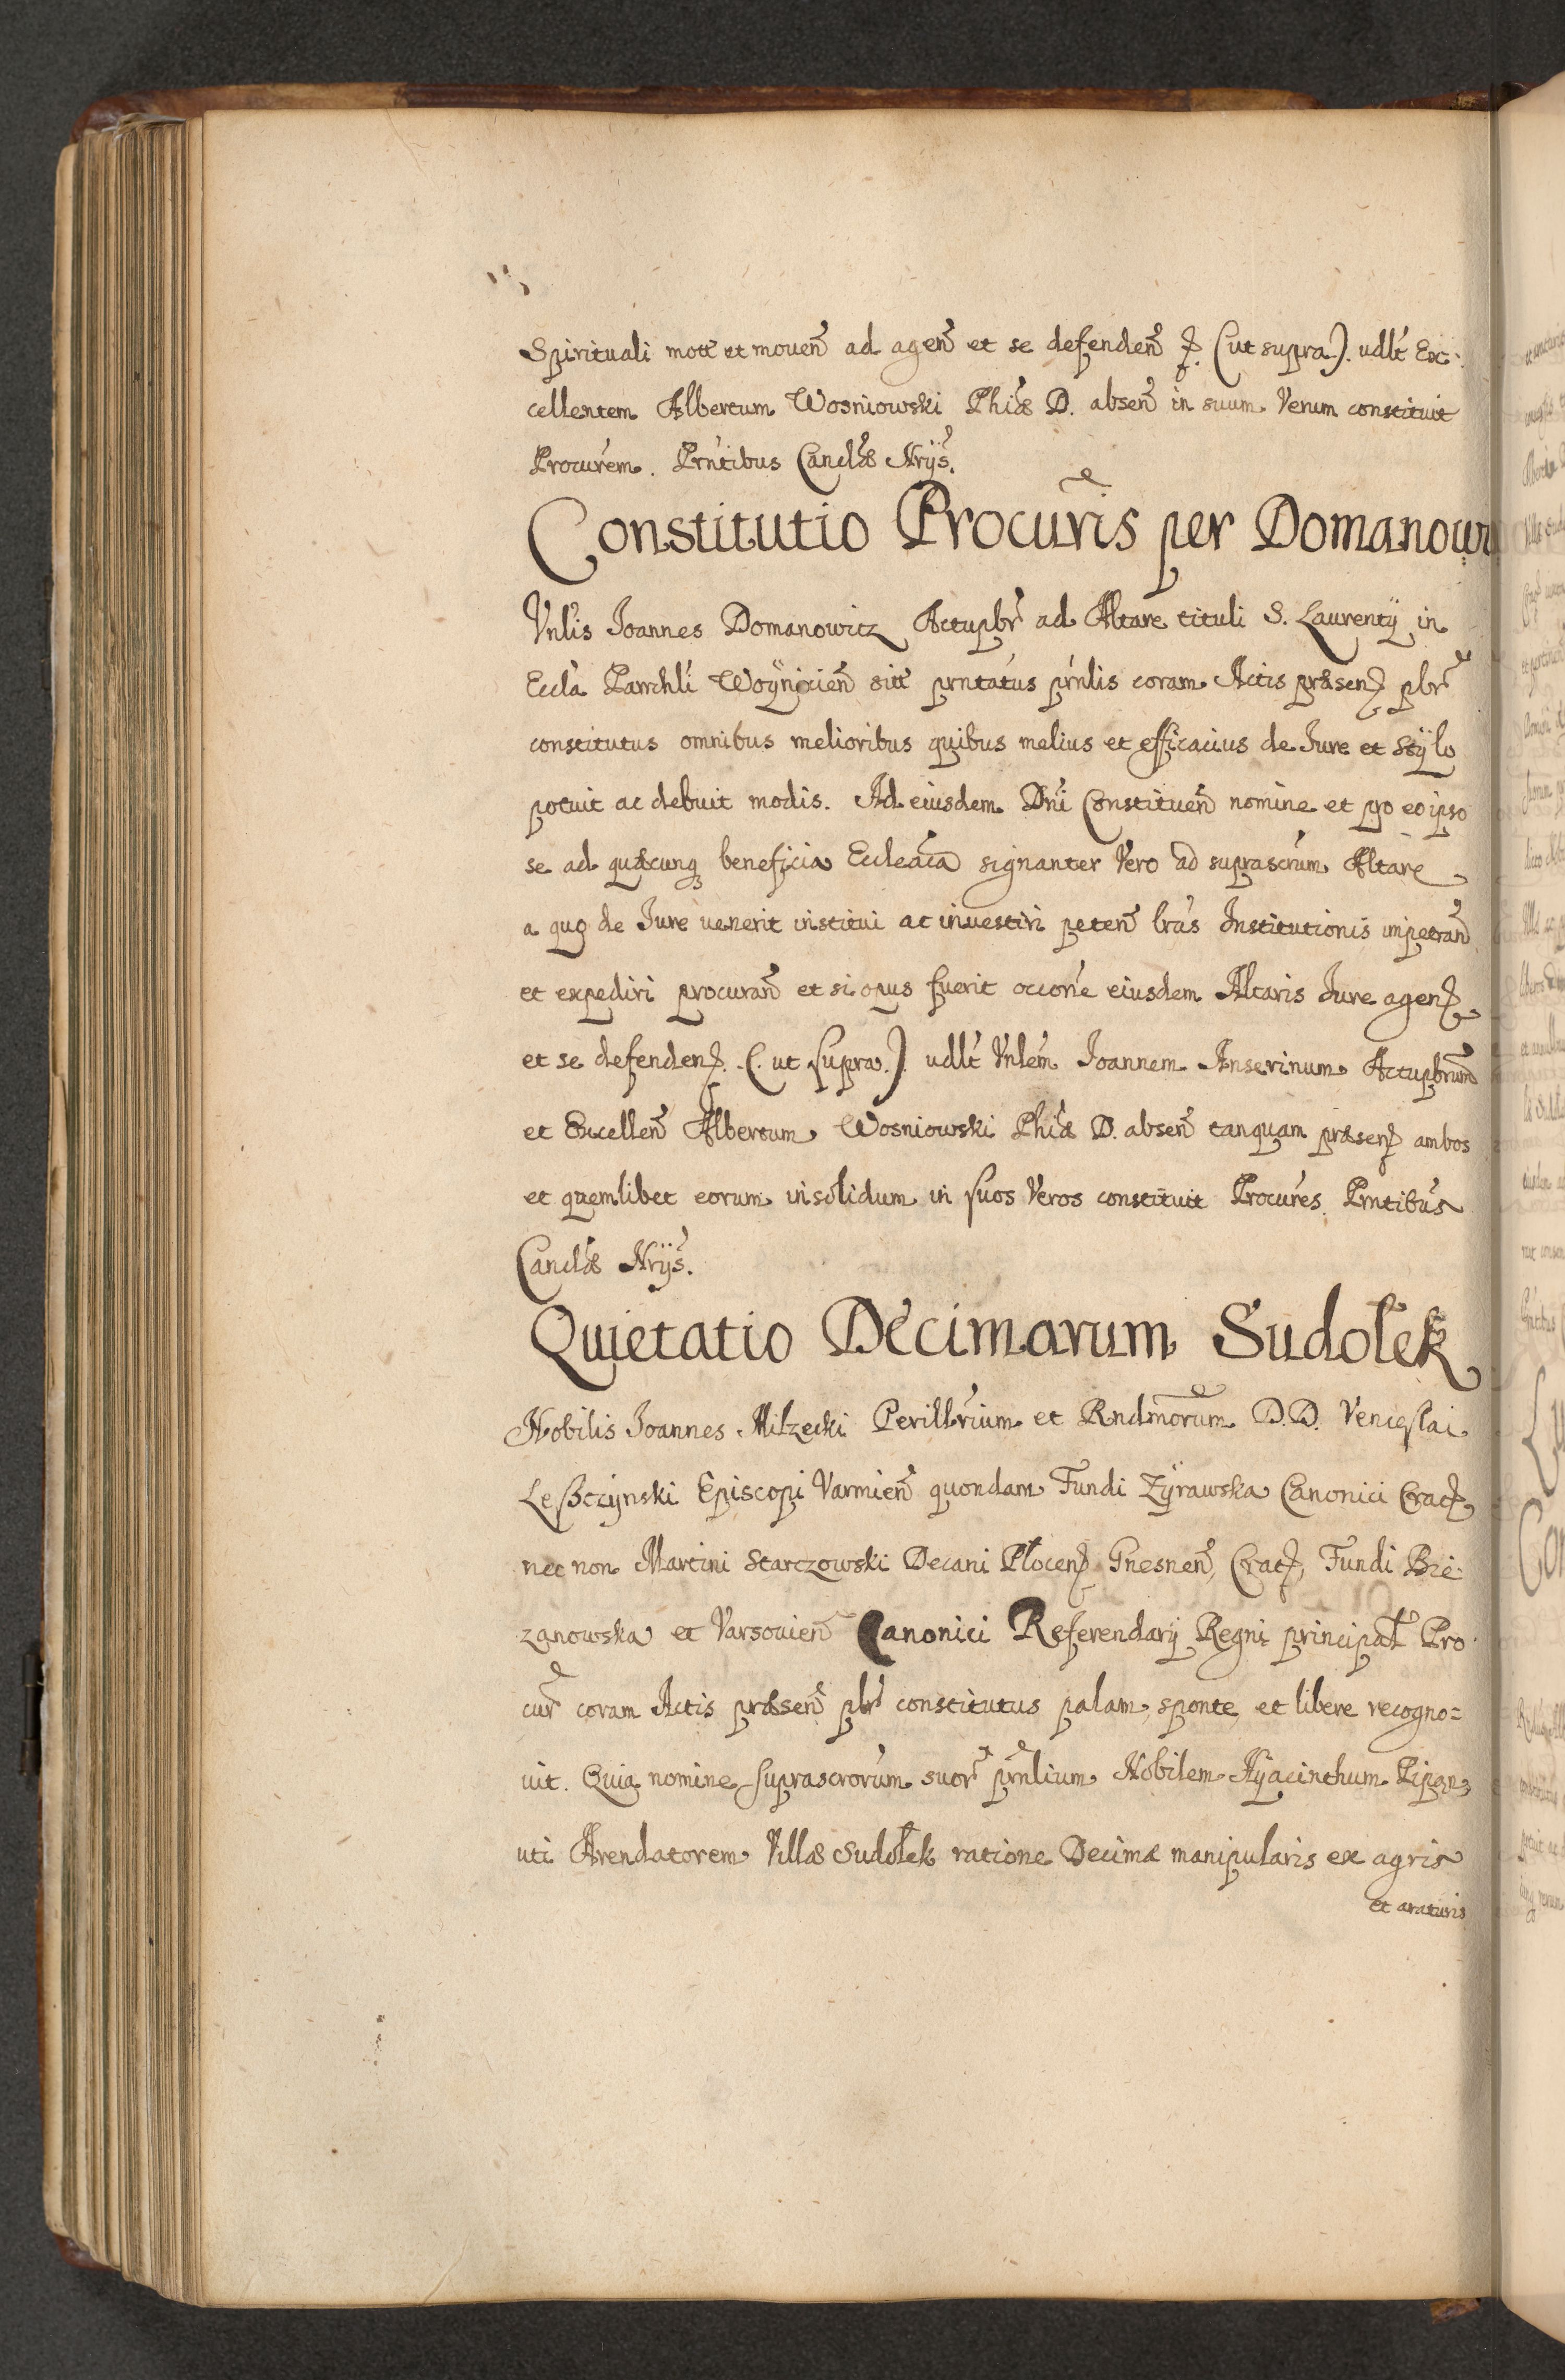 Spirituali mott et mouen ad agen et se defenden p. (ut supra). udlt Ex-
cellentem Albertum Wosniowski Phiæ D. absen in suum Verum constituit
Procurem. Prntibus Canclæ Nrijs.
Constitutio Procuris per Domanowi
Vnlis Joannes Domanowicz Actupbr ad Altare tituli S. Laurentij in
Eccla Parrchli Woÿnicien sitt prntatus prnlis coram Actis præsen pbr
constitutus omnibus melioribus quibus melius et efficacius de Jure et Stÿlo
potuit ac debuit modis. Ad eiusdem Dni Constituen nomine et pro eo ipso
se ad quæcunq beneficia Eccleaca signanter Vero ad suprascrum Altare
a quo de Jure uenerit institui ac inuestiri peten lras Institutionis impetran
et expediri procuran et si opus fuerit occone eiusdem Altaris Jure agen
et se defenden. (ut supra). udlt Vnlem Joannem Anserinum Actupbrum
et Excellen Albertum Wosniowski Phiæ D. absen tanquam præsen ambos
et quemlibet eorum insolidum in suos Veros constituit Procures. Prntibus
Canclæ Nrijs.
Quietatio Decimarum Sudołek
Nobilis Joannes Milzecki Perillrium et Rndmorum D.D. Venceslai
Leszczÿnski Episcopi Varmien quondam Fundi Zÿrawska Canonici Crac
nec non Martini Starczowski Decani Płocen Gnesnen, Crac, Fundi Bie-
zanowska et Varsouien Canonici Referendarij Regni principal Pro-
cur coram Actis præsen pbr constitutus palam, sponte et libere recogno=
uit. Quia nomine suprascrorum suor prnlium Nobilem Hÿacinthum Pipan
uti Arendatorem Villæ Sudołek ratione Decimæ manipularis ex agris
et araturis